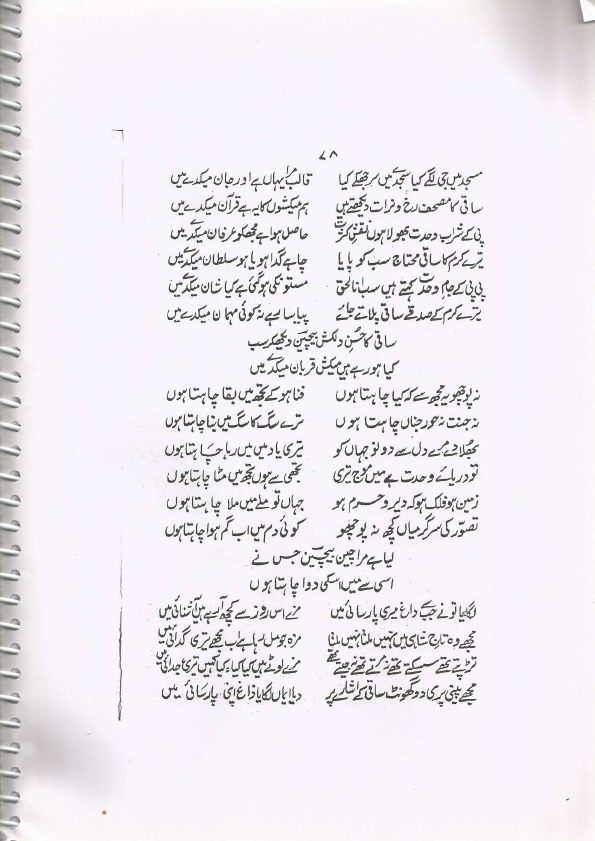 ۷۸
مسجد میں جی لگے کیا سجدے میں سر جھکے کیا قالب مرا یہاں ہے اور جان میکدے میں
ساقی کا مصحف رخ دن رات دیکھتے ہیں ہم میکشوں کا یہ ہے قرآن میکدے میں
پی کے شراب وحدت بھولا ہوں نقش کثرت حاصل ہوا ہے مجھ کو عرفان میکدے میں
تیرے کرم کا ساقی محتاج سب کو پایا چاہے گدا ہو یا ہو سلطان میکدے میں
پی پی کے جام وحدت کہتے ہیں سب انا الحق مستوں کی ہو گئی ہے کیا شان میکدے میں
تیرے کرم کے صدقے ساقی پلاتے جائے پیاسا رہے نہ کوئی مہمان میکدے میں
ساقی کا حسن دلکش بیچین دیکھ کر سب
کیا ہو رہے ہیں میکش قربان میکدے میں
نہ پوچھو یہ مجھ سے کہ کیا چاہتا ہوں فنا ہو کے تجھ میں بقا چاہتا ہوں
نہ جنت نہ حور جناں چاہتا ہوں ترے سگ کا سگ میں بنا چاہتا ہوں
بھلا دے مرے دل سے دونو جہاں کو تیری یاد میں میں رہا چاہتا ہوں
تو دریائے وحدت ہے میں موج تیری تجھی سے ہوں تجھ میں مٹا چاہتا ہوں
زمین ہو فلک ہو کہ دیر و حرم ہو جہاں تو ملے میں ملا چاہتا ہوں
تصور کی سرگرمیاں کچھ نہ پوچھو کوئی دم میں اب گم ہوا چاہتا ہوں
لیا ہے مرا چین بیچین جس نے
اسی سے میں اسکی دوا چاہتا ہوں
لگایا تو نے جب سے داغ میری پارسائی میں مزے اس روز سے کچھ آ رہے ہیں آشنائی میں
مجھے وہ تاج شاہی میں نہیں ملتا نہیں ملتا مزہ جو مل رہا ہے اب مجھے تیری گدائی میں
تڑپتے تھے سسکتے تھے نہ مرتے تھے نہ جیتے تھے مزے لوٹے ہیں کیا کیا کیا کہیں تیری جدائی میں
مجھے پینی پڑی دو گھونٹ ساقی کے اشارے پر دیا ایماں لگایا داغ اپنی پارسائی میں